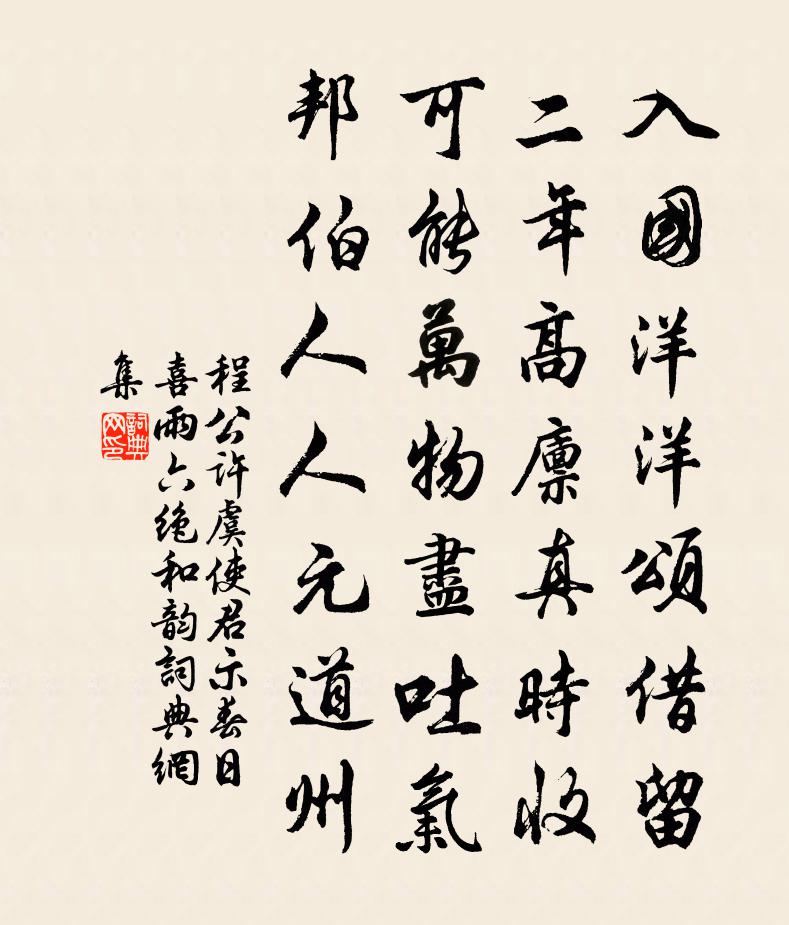 入國洋洋頌借留
二年高廪真時收
可能萬物盡吐氣
邦伯人人元道州
程公許虞使君示春日
喜雨六絶和韵詞典網
集
詞典網印